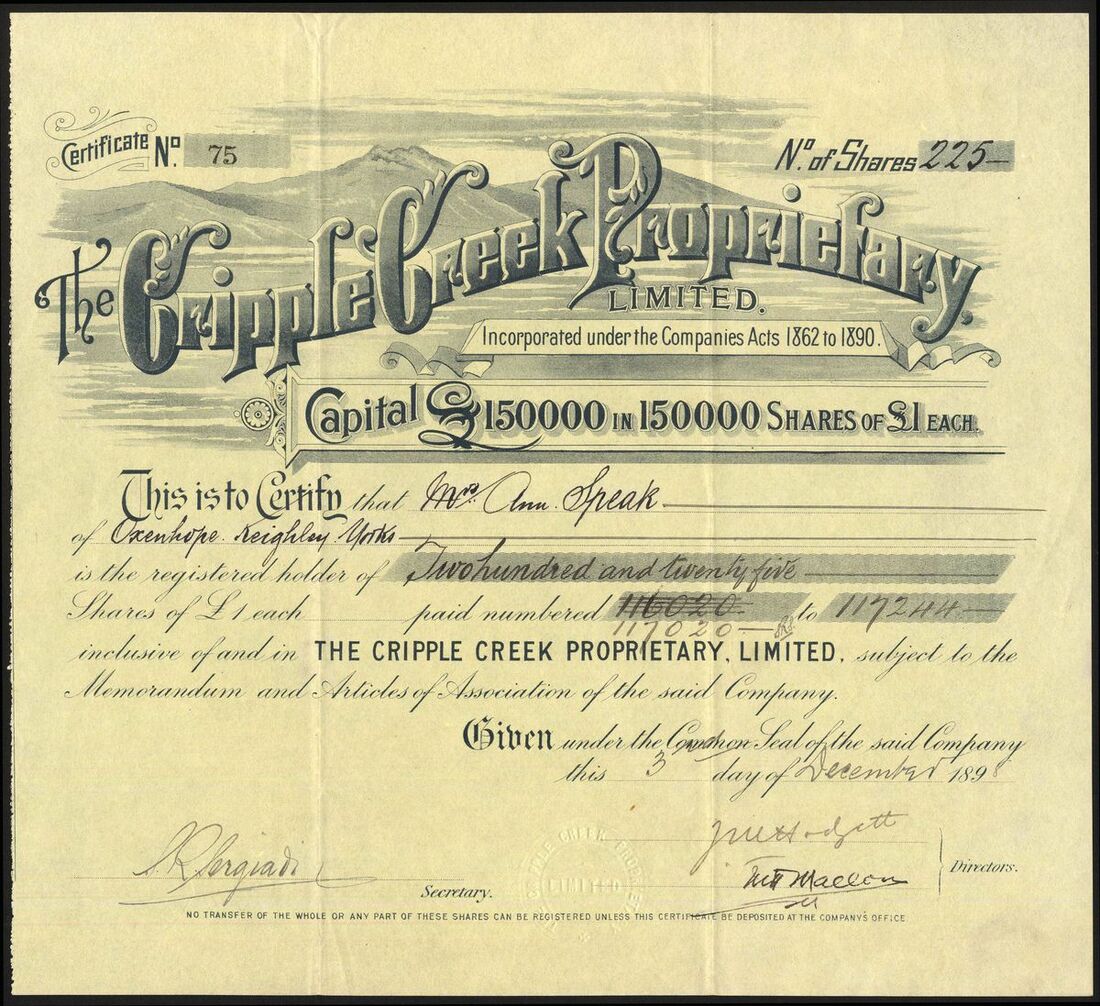 Certificate No. 75
No. of Shares 225—
The Cripple Creek Proprietary
LIMITED.
Incorporated under the Companies Acts 1862 to 1890.
Capital £150000 IN 150000 SHARES OF £1 EACH.
This is to Certify that Mrs. Ann. Speak
of Oxenhope. Keighley Yorks
is the registered holder of Two hundred and twenty five
Shares of £1 each paid numbered 116020 to 117244
117020
inclusive of and in THE CRIPPLE CREEK PROPRIETARY, LIMITED, subject to the
Memorandum and Articles of Association of the said Company.
Given under the Common Seal of the said Company
this 3 day of December 1898
Directors.
Secretary.
NO TRANSFER OF THE WHOLE OR ANY PART OF THESE SHARES CAN BE REGISTERED UNLESS THIS CERTIFICATE BE DEPOSITED AT THE COMPANY'S OFFICE